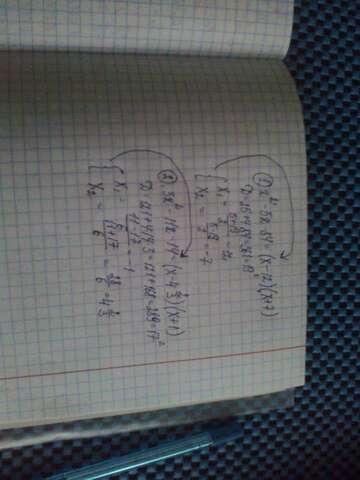 ① x² - 5x - 84 = (x - 12)(x + 7)
D = 25 + 4·84 = 361 = 19
x₁ = (5+19)/2 = 12
x₂ = (5-19)/2 = -7
②. 3x² - 11x - 14 = (x - 4 2/3)(x + 1)
D = 121 + 4·14·3 = 121 + 168 = 289 = 17²
x₁ = (11-17)/6 = -1
x₂ = (11+17)/6 = 28/6 = 4 2/3